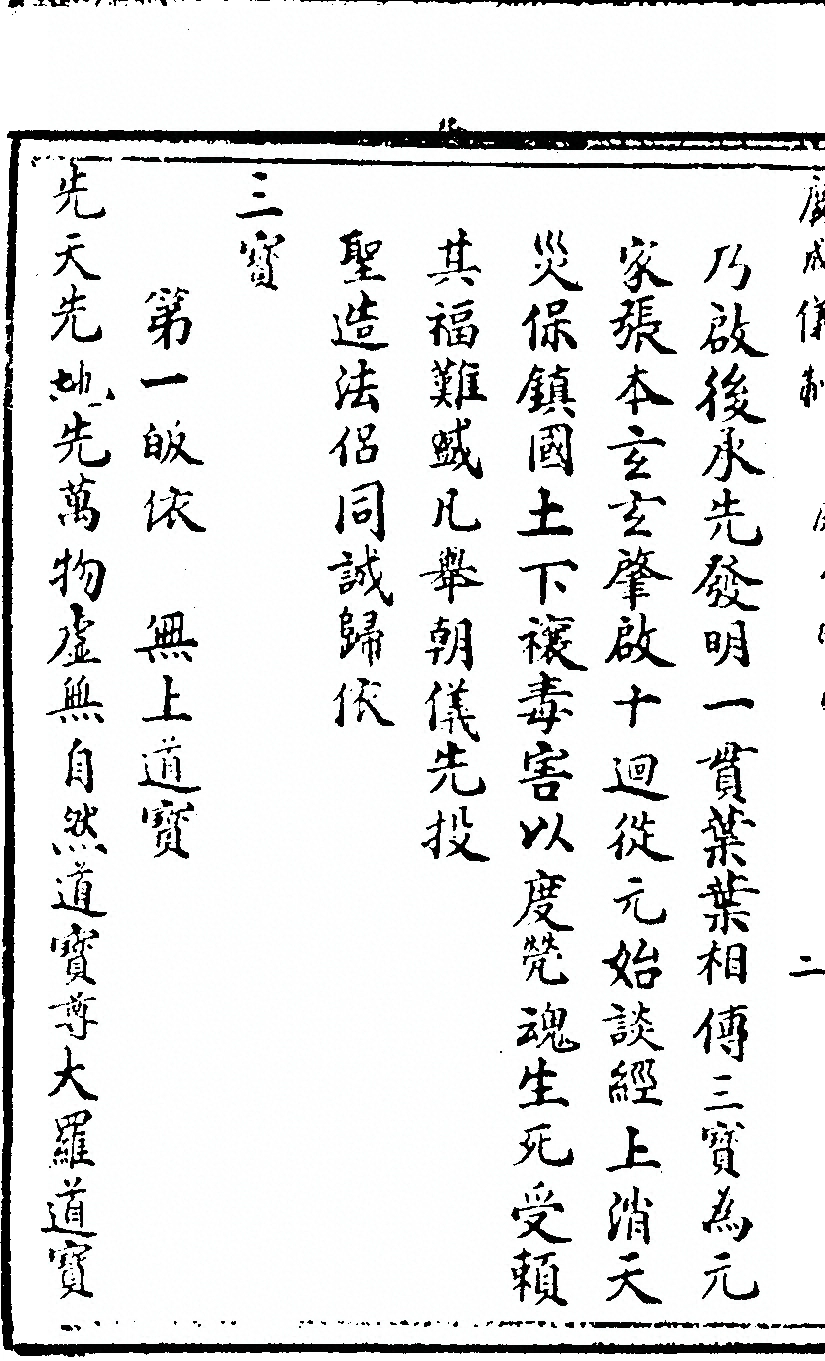 廣成儀制
二
乃啟後承先發明一貫葉葉相傳三寶為元
家張本玄玄肇啟十迴從元始談經上消天
災保鎮國土下禳毒害以度煢魂生死受賴
其福難盛凡舉朝儀先投
聖造法侶同誠歸依
三寶
第一皈依　無上道寶
先天先地先萬物虛無自然道寶尊大羅道寶